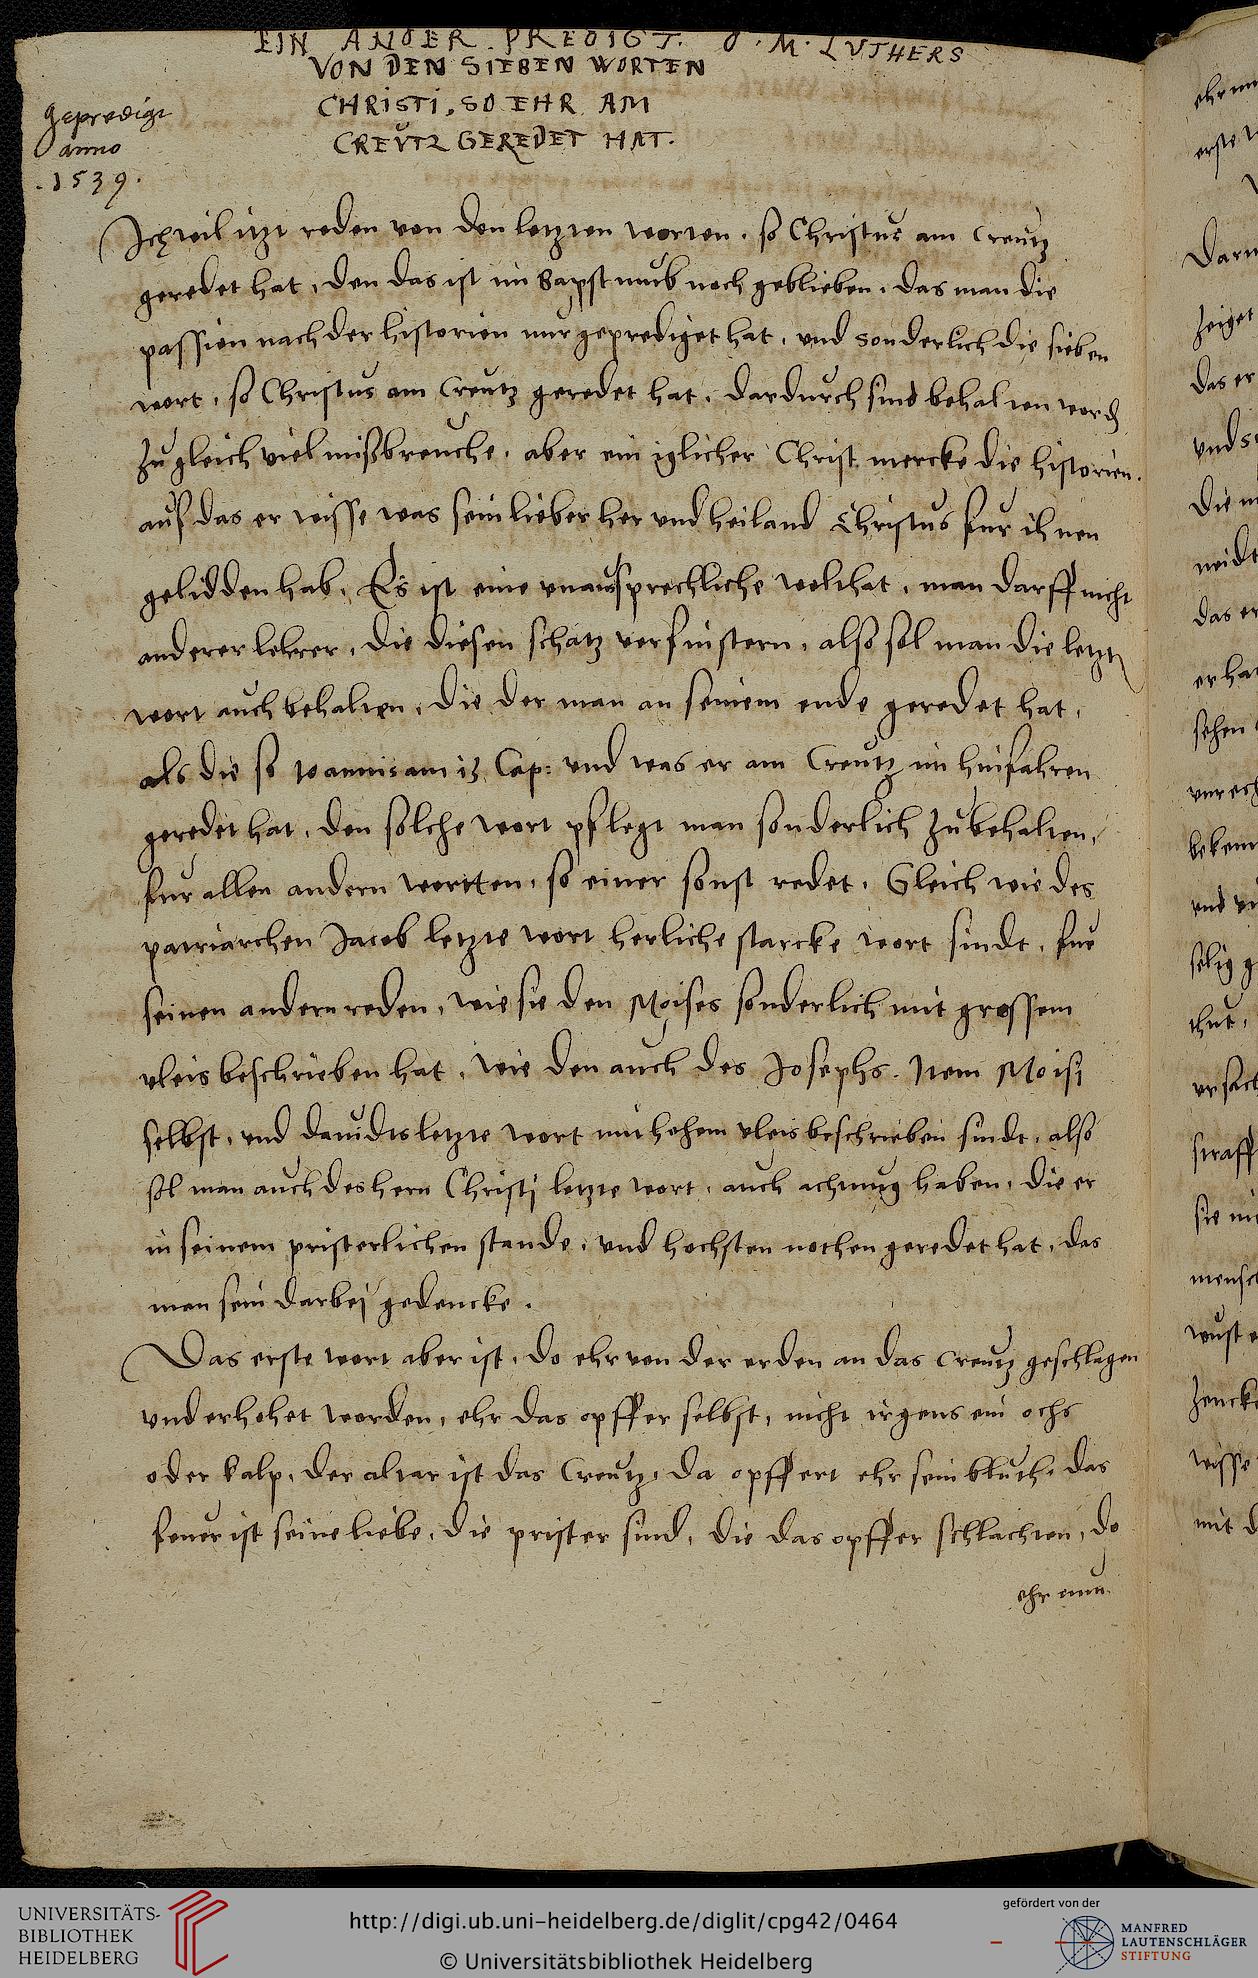 EIN ANDER PREDIGT. D. M. LUTHERS
VON DEN SIEBEN WORTEN
CHRISTI, SO EHR AM
CREUTZ GEREDET HAT.
gepredigt
anno
.1539.
Ich wil itzt reden von den letzten worten, so Christus am Creutz
geredet hat, den das ist im Bapstumb noch geblieben, das man die
passion nach der historien nur geprediget hat, und sonderlich die sieben
wort, so Christus am Creutz geredet hat, dardurch sind behalten word
zugleich viel mißbreuche, aber ein iglicher Christ mercke die historien.
auf das er wisse was sein lieber her und heiland Christus fur ihnen
gelidden hab, Es ist eine unaussprechliche wolthat, man darff nicht
anderer lehrer, die diesen schatz verfinstern, also sol man die letzt
wort auch behalten, die der man an seinem ende geredet hat,
als die so Joannis am 13 Cap: und was er am Creutz im hinfahren
geredet hat, den solche wort pflegt man sonderlich zubehalten,
fur allen andern wortten, so einer sonst redet, Gleich wie des
patriarchen Jacob letzte wort herliche starcke wort sindt, fur
seinen andern reden, wie sie den Moises sonderlich mit grossem
vleis beschrieben hat, wie den auch des Josephs. Item Moisi
selbst, und Davidts letzte wort mit hohem vleis beschrieben sindt, also
sol man auch des hern Christi letzte wort, auch achtung haben, die er
in seinem pristerlichen stande, und hochsten nothen geredet hat, das
man sein darbej gedencke.
Das erste wort aber ist, do ehr von der erden an das creutz geschlagen
und erhohet worden, ehr das opffer selbst, nicht irgens ein ochs
oder kalp, der altar ist das Creutz, da opffert ehr sein bluth, das
feuer ist seine liebe, die prister sind, die das opffer schlachten, do
ehr nun
UNIVERSITÄTS-
BIBLIOTHEK
HEIDELBERG
http://digi.ub.uni-heidelberg.de/diglit/cpg42/0464
© Universitätsbibliothek Heidelberg
gefördert von der
MANFRED
LAUTENSCHLÄGER
STIFTUNG